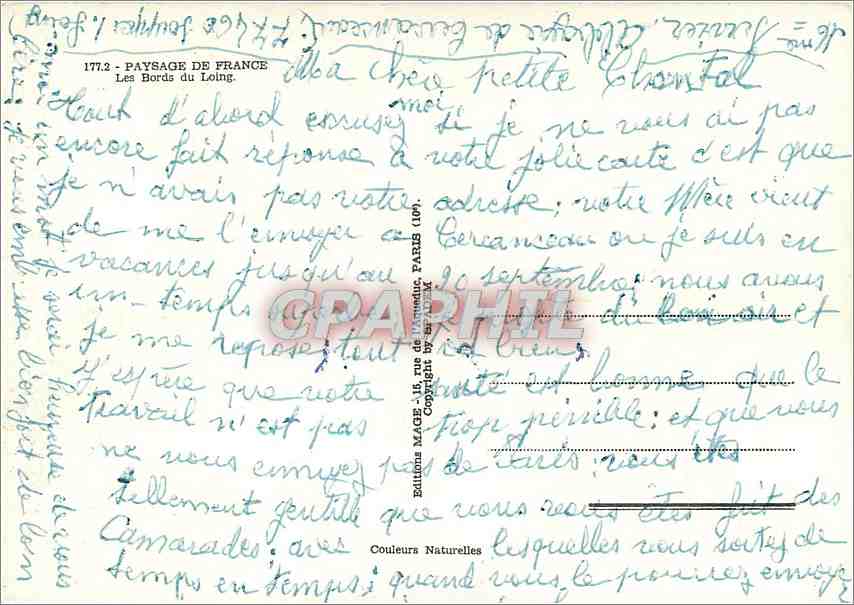 177.2 - PAYSAGE DE FRANCE
Les Bords du Loing.
Ma Chère petite Chantal
Tout d'abord excusez moi si je ne vous ai pas
encore fait réponse à votre jolie carte c'est que
je n'avais pas votre adresse; votre Mère vient
de me l'envoyer a Cercanceau ou je suis en
vacances jusqu'au 20 septembre: nous avons
un temps du bon air et
je me repose; tout va bien;
J'espère que votre santé est bonne que le
travail n'est pas trop pénible: et que vous
ne vous ennuyez pas de Paris; vous êtes
tellement gentille que vous vous êtes fait des
Camarades: avec lesquelles vous sortez de
temps en temps; quand vous le pourrez envoyez
moi un mot je serai heureuse de vous
lire: je vous embrasse bien fort de loin
Mme Abbaye de Cercanceau 77460 Souppes s/ Loing
Editions MAGE - 15, rue de l'Aqueduc, PARIS (10e).
Copyright by SPADEM
Couleurs Naturelles
CPARHIL